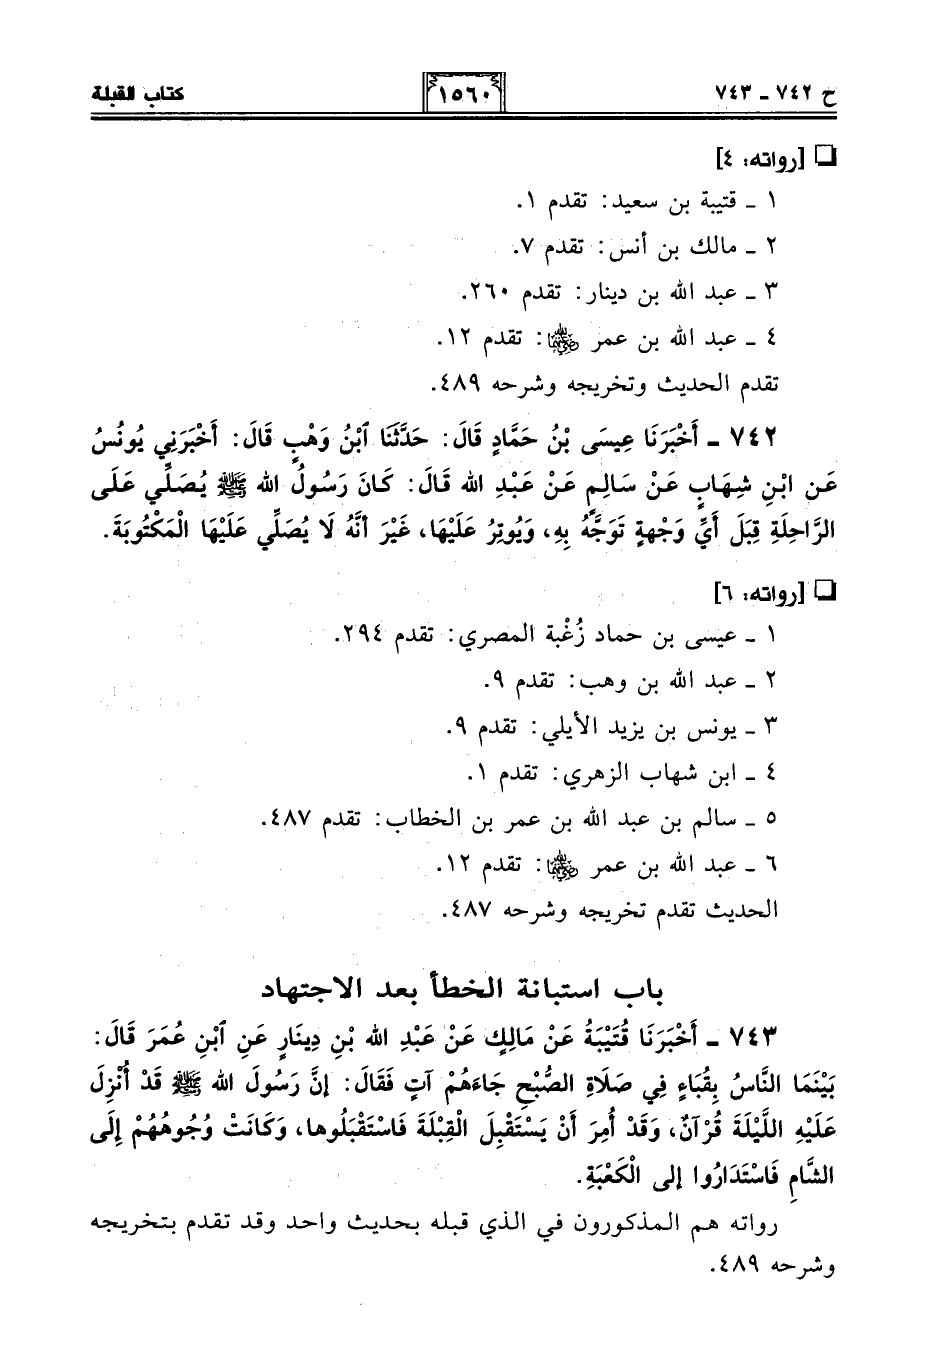 ح ٧٤٢ ـ ٧٤٣ ١٥٦٠ كتاب القبلة
❏ [رواته: ٤]
١ ـ قتيبة بن سعيد: تقدم ١.
٢ ـ مالك بن أنس: تقدم ٧.
٣ ـ عبد الله بن دينار: تقدم ٢٦٠.
٤ ـ عبد الله بن عمر رضي الله عنهما: تقدم ١٢.
تقدم الحديث وتخريجه وشرحه ٤٨٩.
٧٤٢ ـ أَخْبَرَنَا عِيسَى بْنُ حَمَّادٍ قَالَ: حَدَّثَنَا ٱبْنُ وَهْبٍ قَالَ: أَخْبَرَنِي يُونُسُ
عَنِ ابْنِ شِهَابٍ عَنْ سَالِمٍ عَنْ عَبْدِ الله قَالَ: كَانَ رَسُولُ الله ﷺ يُصَلِّي عَلَى
الرَّاحِلَةِ قِبَلَ أَيِّ وَجْهةٍ تَوَجَّهُ بِهِ، وَيُوتِرُ عَلَيْهَا، غَيْرَ أَنَّهُ لَا يُصَلِّي عَلَيْهَا الْمَكْتُوبَةَ.
❏ [رواته: ٦]
١ ـ عيسى بن حماد زُغْبة المصري: تقدم ٢٩٤.
٢ ـ عبد الله بن وهب: تقدم ٩.
٣ ـ يونس بن يزيد الأيلي: تقدم ٩.
٤ ـ ابن شهاب الزهري: تقدم ١.
٥ ـ سالم بن عبد الله بن عمر بن الخطاب: تقدم ٤٨٧.
٦ ـ عبد الله بن عمر رضي الله عنهما: تقدم ١٢.
الحديث تقدم تخريجه وشرحه ٤٨٧.
باب استبانة الخطأ بعد الاجتهاد
٧٤٣ ـ أَخْبَرَنَا قُتَيْبَةُ عَنْ مَالِكٍ عَنْ عَبْدِ الله بْنِ دِينَارٍ عَنِ ٱبْنِ عُمَرَ قَالَ:
بَيْنَمَا النَّاسُ بِقُبَاءٍ فِي صَلَاةِ الصُّبْحِ جَاءَهُمْ آتٍ فَقَالَ: إِنَّ رَسُولَ الله ﷺ قَدْ أُنْزِلَ
عَلَيْهِ اللَّيْلَةَ قُرْآنٌ، وَقَدْ أُمِرَ أَنْ يَسْتَقْبِلَ الْقِبْلَةَ فَاسْتَقْبَلُوها، وَكَانَتْ وُجُوهُهُمْ إِلَى
الشَّامِ فَاسْتَدَارُوا إلى الْكَعْبَةِ.
رواته هم المذكورون في الذي قبله بحديث واحد وقد تقدم بتخريجه
وشرحه ٤٨٩.